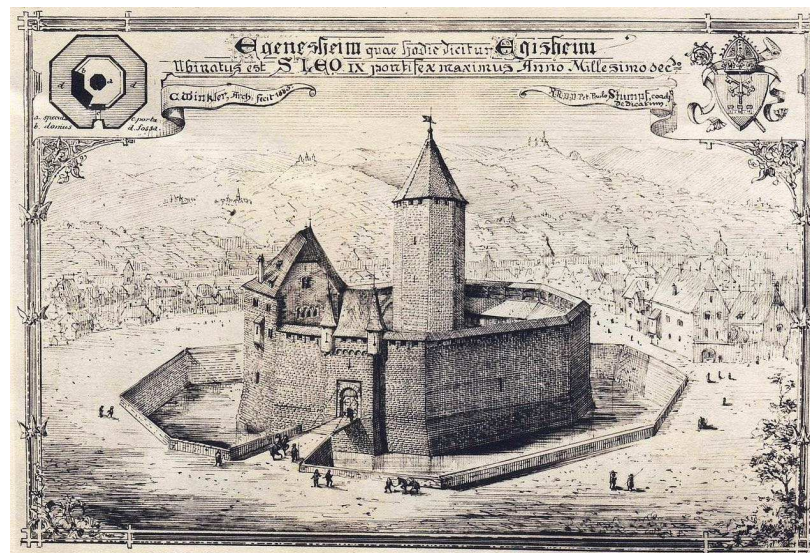 Egenesheim quae hodie dicitur Egisheim
Ubi natus est S. LEO IX pontifex maximus Anno Millesimo sec.do
C. Winkler, Arch. fecit
Pet. Paulo Stumpf, coadj.
Dedicatum.
a. specula c. porta
b. domus d. fossa.